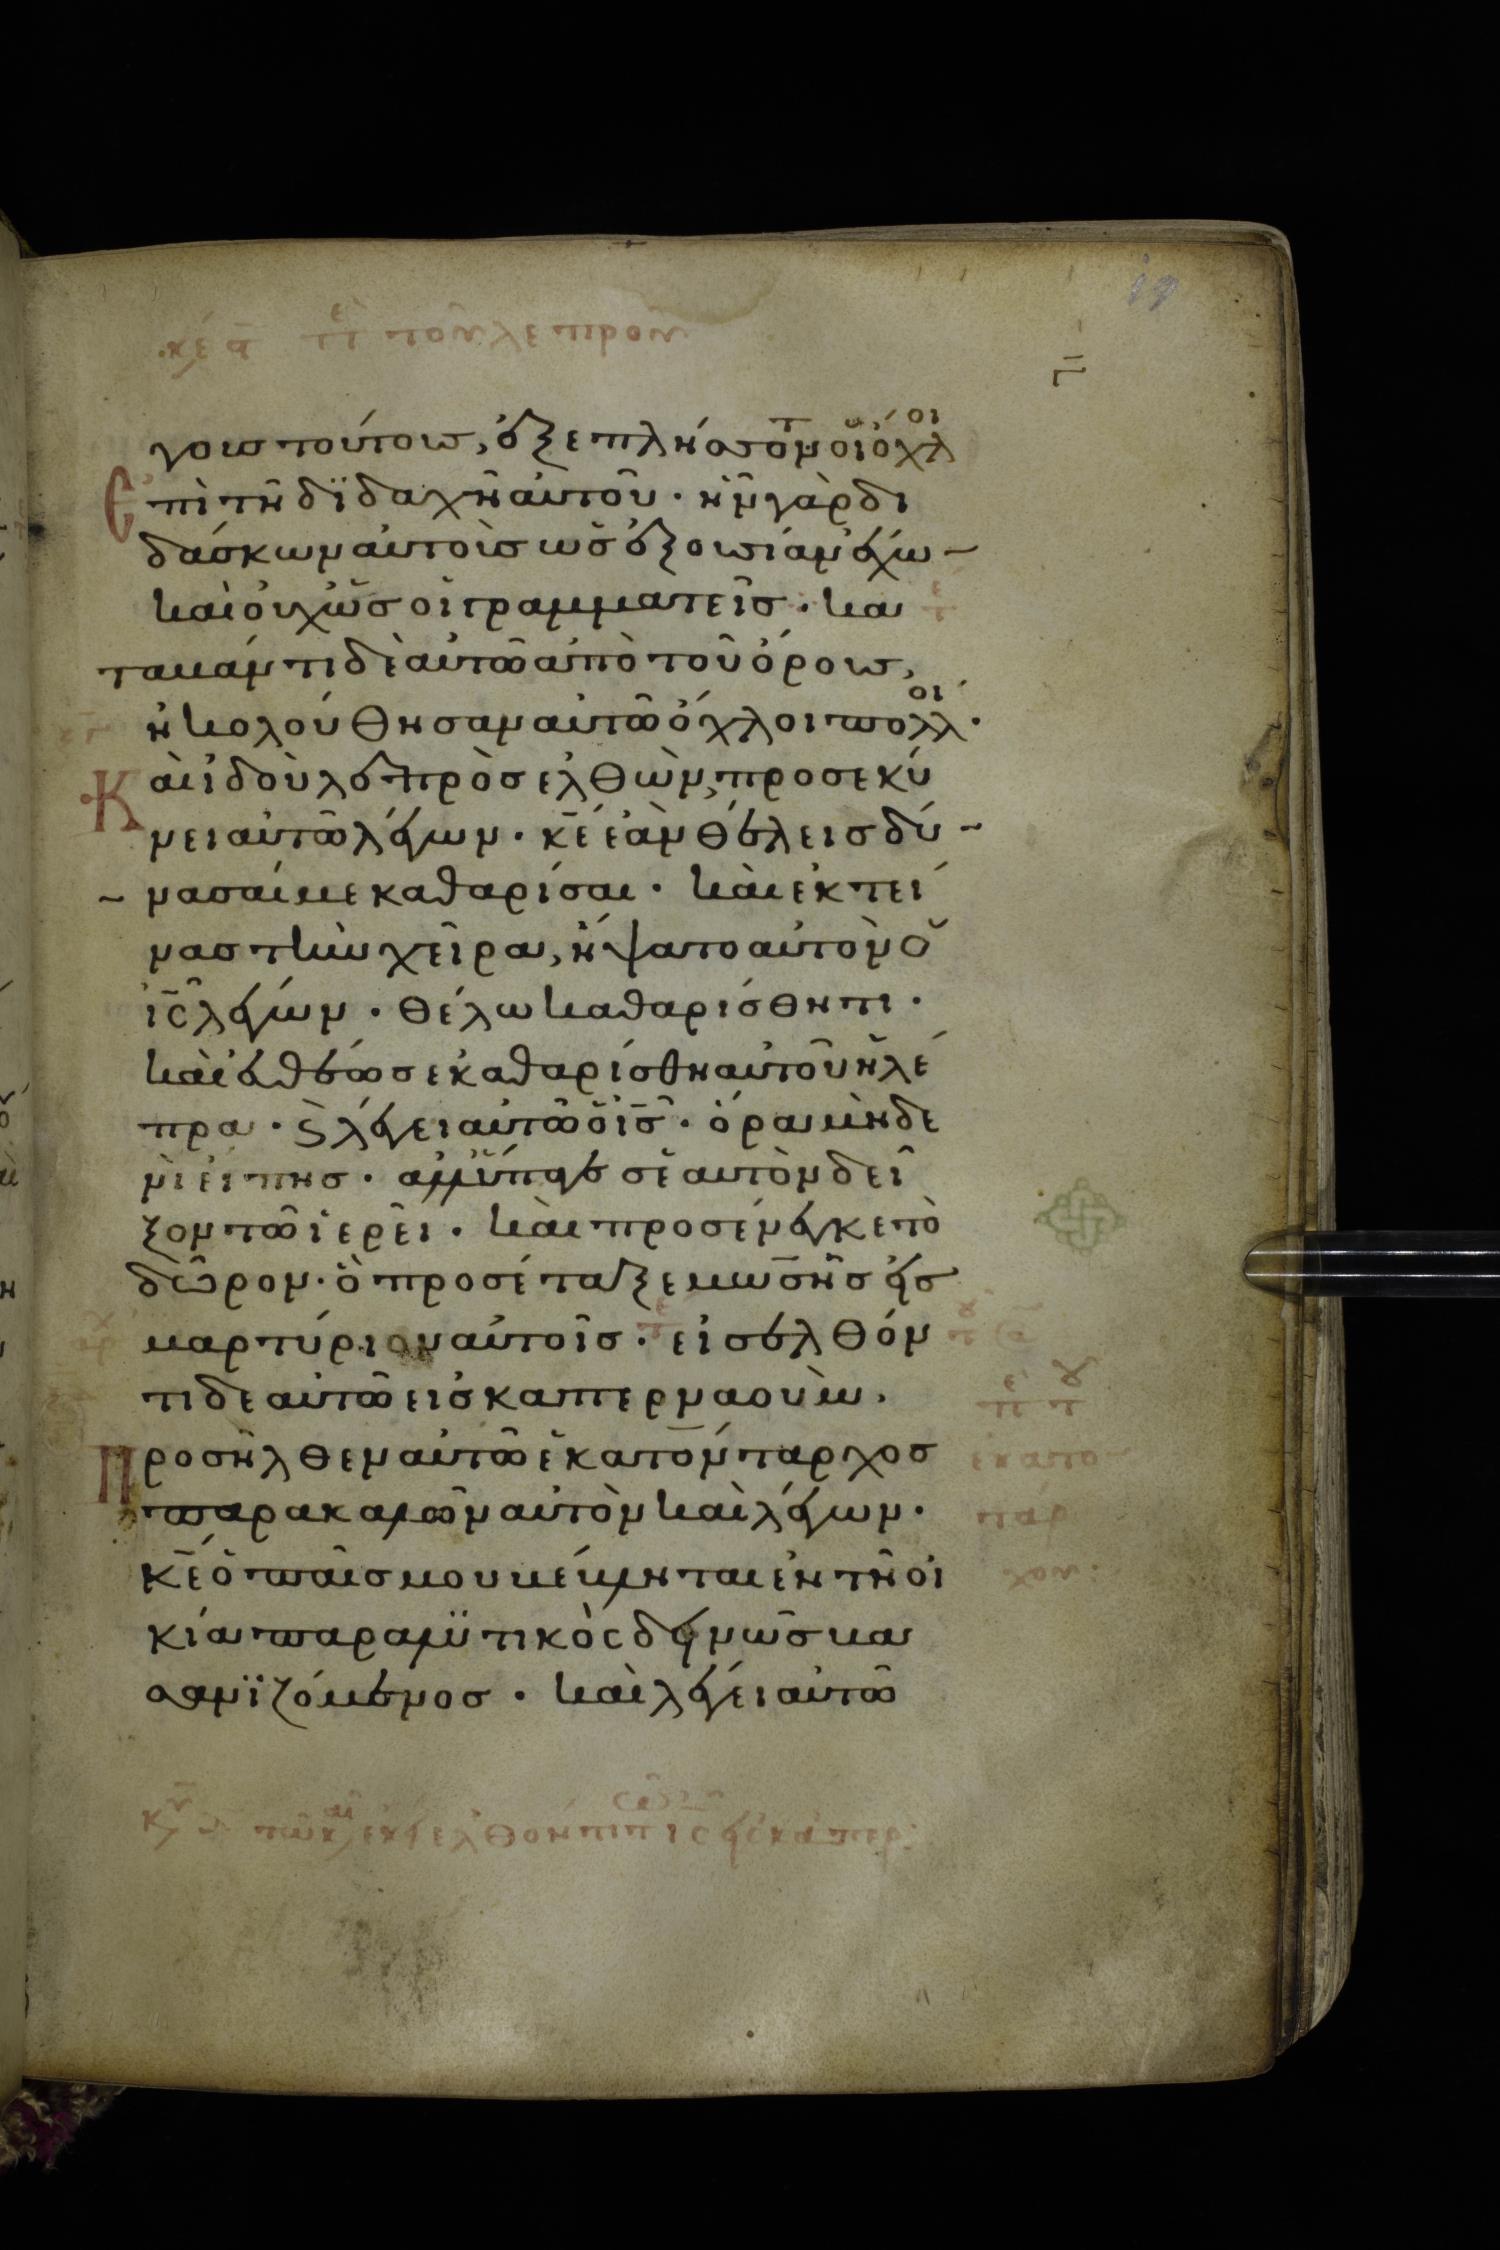 κε α πε του λεπρου
γοις τούτοις, ἐξεπλήσσοντο οἱ ὄχλοι
Ἐπὶ τῆ διδαχῆ αὐτοῦ · ἦν γὰρ δι
δάσκων αὐτοὺς ὡς ἐξουσίαν ἔχων
καὶ οὐχ ὡς οἱ γραμματεῖς · κα
ταβάντι δὲ αὐτῶ ἀπὸ τοῦ ὄρους,
ἠκολούθησαν αὐτῶ ὄχλοι πολλοί ·
Καὶ ἰδοὺ λεπρὸς ἐλθὼν, προσεκύ
νει αὐτῶ λέγων · κ̅ε̅ ἐὰν θέλεις δύ
νασαί με καθαρίσαι · καὶ ἐκτεί
νας τὴν χεῖρα, ἥψατο αὐτοῦ ὁ
ι̅ς̅ λέγων · θέλω καθαρίσθητι ·
καὶ εὐθέως ἐκαθαρίσθη αὐτοῦ ἡ λέ
πρα · ϗ λέγει αὐτῶ ὁ ι̅ς̅ · ὅρα μηδε
νὶ εἴπης · ἀλλ' ὕπαγε σεαυτὸν δεῖ
ξον τῶ ἱερεῖ · καὶ προσένεγκε τὸ
δῶρον · ὃ προσέταξε μωσῆς εἰς
μαρτύριον αὐτοῖς · εἰσελθόν
τι δε αὐτῶ εἰς καπερναούμ,
Προσῆλθεν αὐτῶ ἑκατόνταρχος
παρακαλῶν αὐτὸν καὶ λέγων ·
κ̅ε̅ ὁ παῖς μου βέβληται ἐν τῆ οἰ
κία παραλυτικὸς δεινῶς βα
σανιζόμενος · καὶ λέγει αὐτῶ
πε τ
εκατο
ταρ
χου